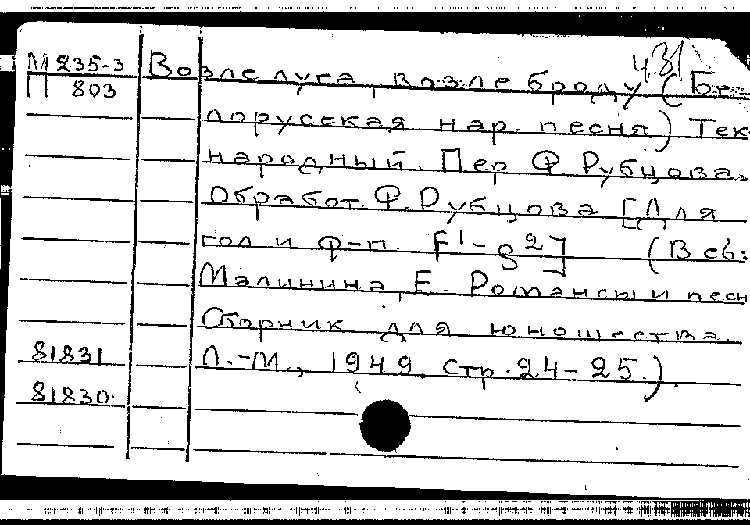 431
М 235-3
П 803
Возле луга, возле броду (Бе-
лорусская нар. песня) Тек
народный. Пер. Ф. Рубцова.
Обработ. Ф. Рубцова [Для
гол и ф-п. F¹-g²] (В сб:
Малинина, Е. Романсы и песн
Сборник для юношества.
Л.-М., 1949. стр. 24-25.).
81831
81830.